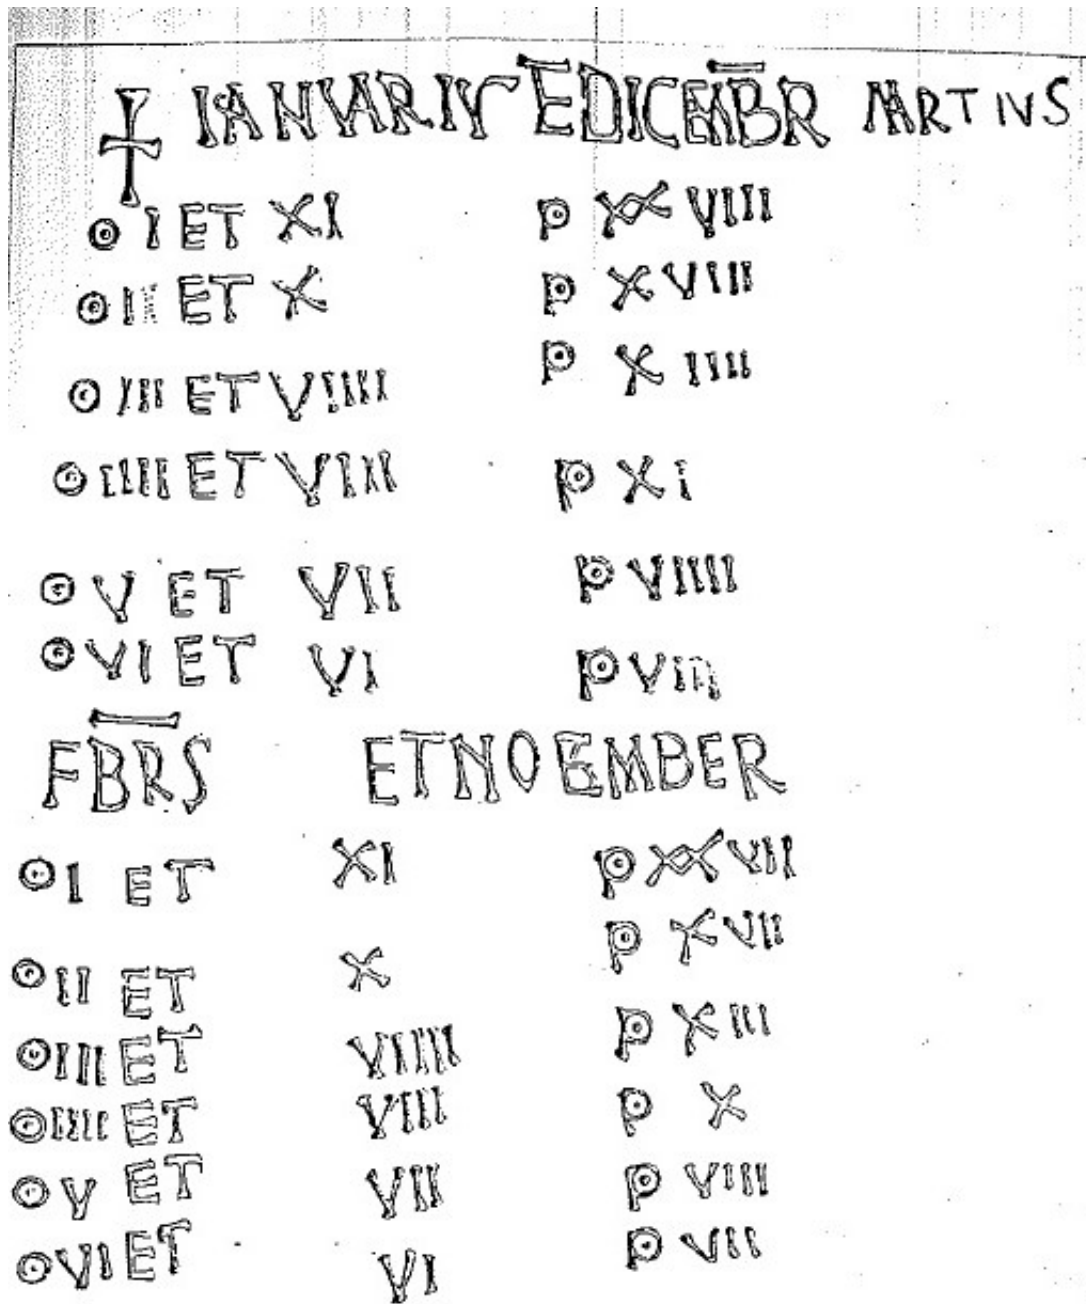 † IANVARIVS E DICEMBR MARTIVS
O I ET XI P XXVIIII
O II ET X P XVIII
O III ET VIIII P XIIII
O IIII ET VIII P XI
O V ET VII P VIIII
O VI ET VI P VIII
FBRS ET NOEMBER
O I ET XI P XXVII
O II ET X P XVII
O III ET VIIII P XIII
O IIII ET VIII P X
O V ET VII P VIII
O VI ET VI P VII